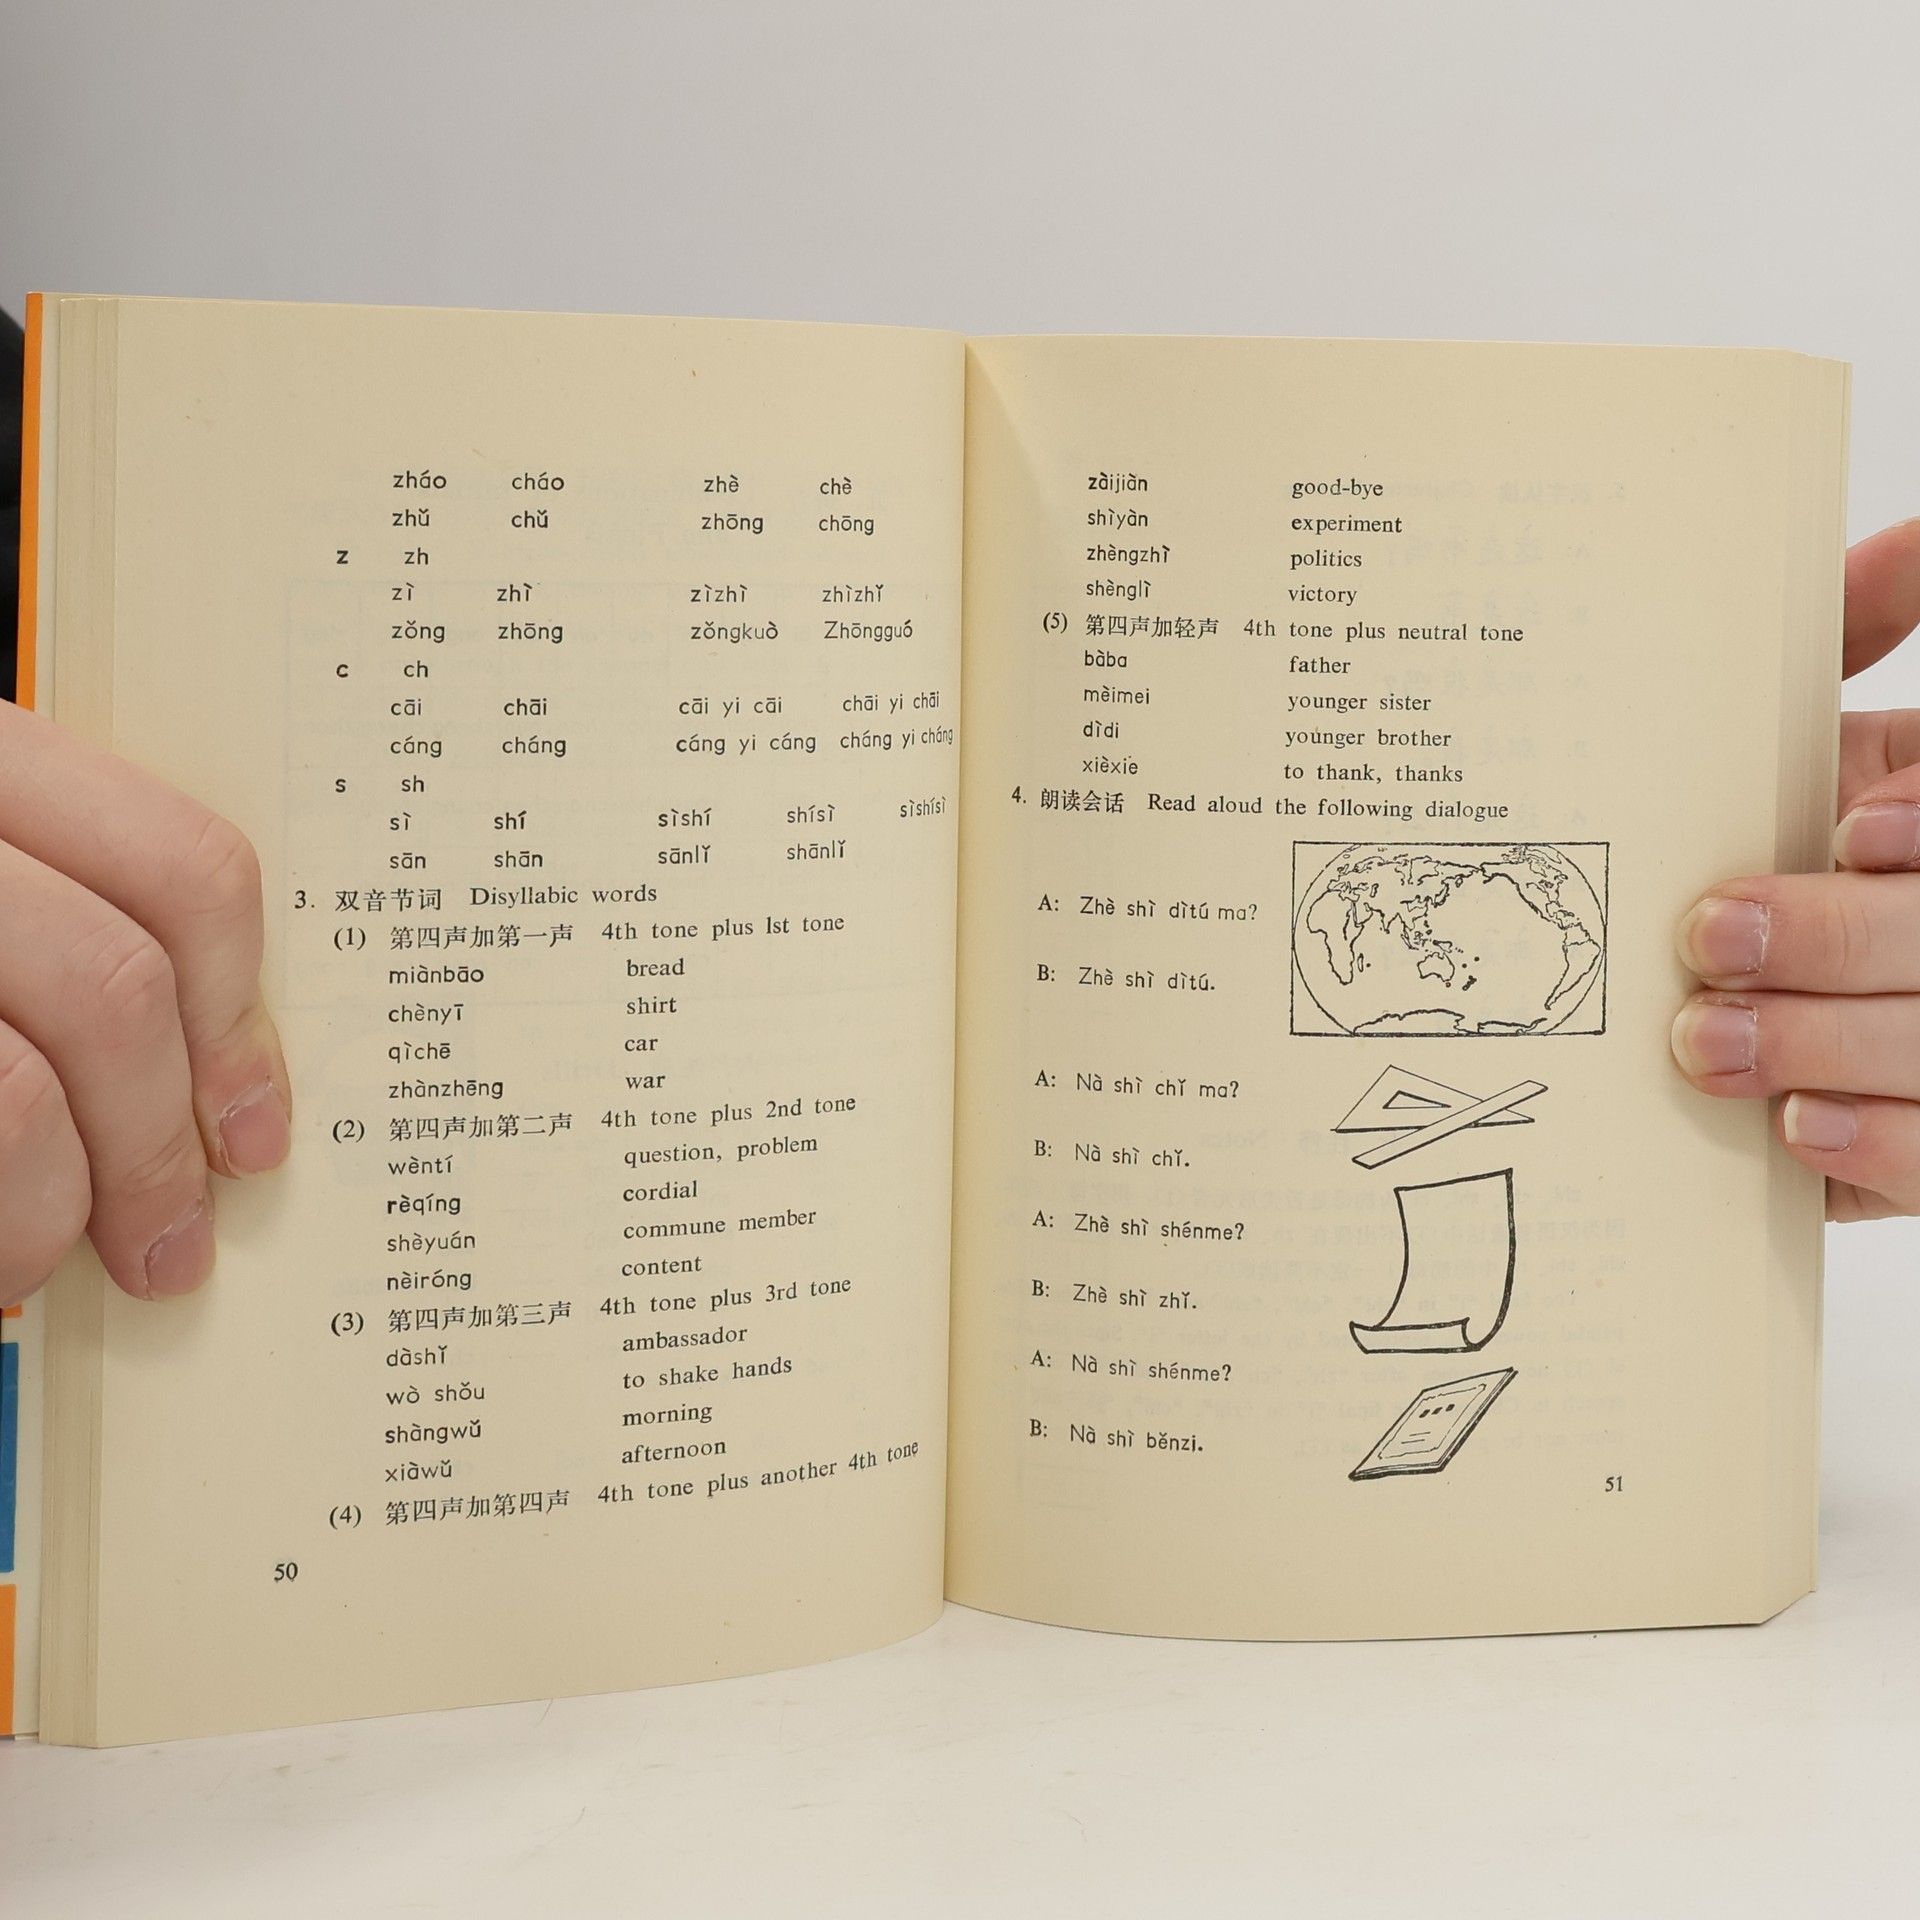 zháo cháo zhè chè
zhǔ chǔ zhōng chōng
z zh
zì zhì zìzhì zhìzhǐ
zǒng zhōng zǒngkuò Zhōngguó
c ch
cāi chāi cāi yi cāi chāi yi chāi
cáng cháng cáng yi cáng cháng yi cháng
s sh
sì shí sìshí shísì sìshísì
sān shān sānlǐ shānlǐ
3. 双音节词 Disyllabic words
(1) 第四声加第一声 4th tone plus 1st tone
miànbāo bread
chènyī shirt
qìchē car
zhànzhēng war
(2) 第四声加第二声 4th tone plus 2nd tone
wèntí question, problem
rèqíng cordial
shèyuán commune member
nèiróng content
(3) 第四声加第三声 4th tone plus 3rd tone
dàshǐ ambassador
wò shǒu to shake hands
shàngwǔ morning
xiàwǔ afternoon
(4) 第四声加第四声 4th tone plus another 4th tone
50
zàijiàn good-bye
shìyàn experiment
zhèngzhì politics
shènglì victory
(5) 第四声加轻声 4th tone plus neutral tone
bàba father
mèimei younger sister
dìdi younger brother
xièxie to thank, thanks
4. 朗读会话 Read aloud the following dialogue
A: Zhè shì dìtú ma?
B: Zhè shì dìtú.
A: Nà shì chǐ ma?
B: Nà shì chǐ.
A: Zhè shì shénme?
B: Zhè shì zhǐ.
A: Nà shì shénme?
B: Nà shì běnzi.
51